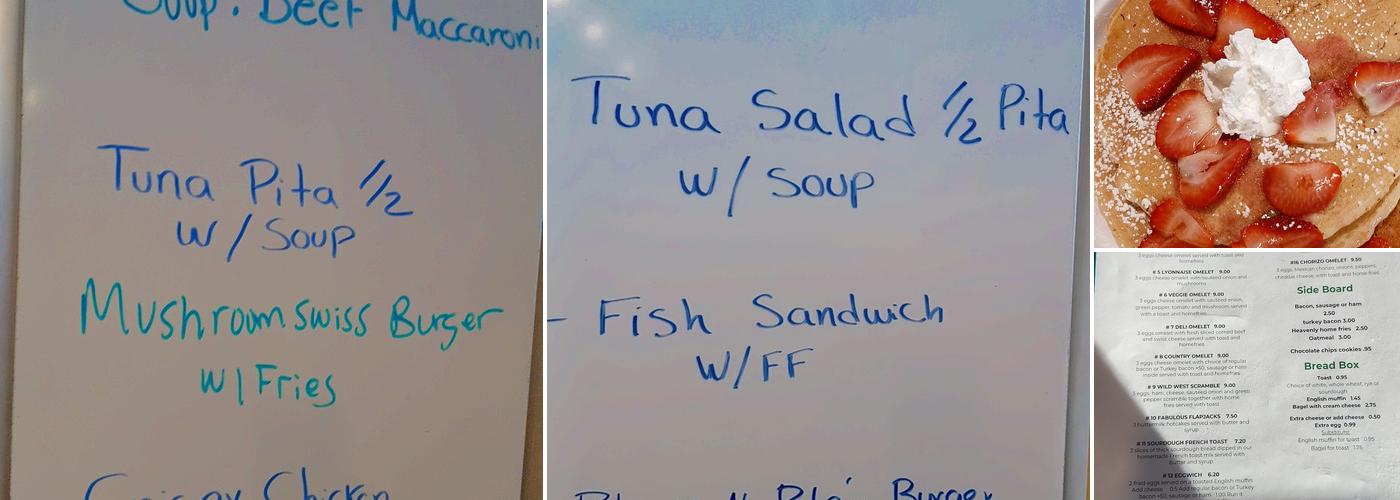 Soup. Beef Maccaroni
Tuna Pita 1/2
W/Soup
Mushroom Swiss Burger
W/Fries
Chicken
Tuna Salad 1/2 Pita
W/Soup
- Fish Sandwich
W/FF
Burger
3 eggs cheese omelet served with toast and
homefries
# 5 LYONNAISE OMELET 9.00
3 eggs cheese omelet with sauteed onion and
mushrooms
# 6 VEGGIE OMELET 9.00
3 eggs cheese omelet with sauteed onion,
green pepper, tomato and mushroom served
with a toast and homefries
# 7 DELI OMELET 9.00
3 eggs omelet with fresh sliced corned beef
and swiss cheese served with toast and
homefries
# 8 COUNTRY OMELET 9.00
3 eggs cheese omelet with choice of regular
bacon or Turkey bacon +50, sausage or ham
inside served with toast and homefries
# 9 WILD WEST SCRAMBLE 9.00
3 eggs, ham, cheese, sauteed onion and green
pepper scramble together with home
fries served with toast
# 10 FABULOUS FLAPJACKS 7.50
3 buttermilk hotcakes served with butter and
syrup
# 11 SOURDOUGH FRENCH TOAST 7.20
3 slices of thick sourdough bread dipped in our
homemade French toast mix served with
butter and syrup
# 12 EGGWICH 6.20
2 fried eggs served on a toasted English muffin
Add cheese 0.5 Add regular bacon or Turkey
bacon +50, sausage or ham 1.00 Run it
#16 CHORIZO OMELET 9.50
3 eggs, Mexican chorizo, onions, peppers,
cheddar cheese, with toast and home fries
Side Board
Bacon, sausage or ham
2.50
turkey bacon 3.00
Heavenly home fries 2.50
Oatmeal 3.00
Chocolate chips cookies .95
Bread Box
Toast 0.95
Choice of white, whole wheat, rye or
sourdough
English muffin 1.45
Bagel with cream cheese 2.75
Extra cheese or add cheese 0.50
Extra egg 0.99
Substitute:
English muffin for toast 0.95
Bagel for toast 1.25